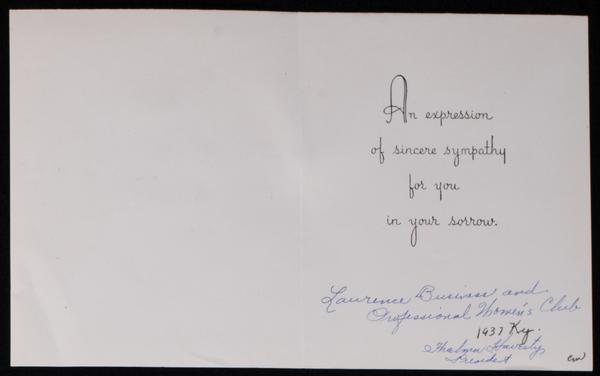 An expression
of sincere sympathy
for you
in your sorrow.
Laurence Business and
Professional Women's Club
1937 Ky.
Thelma
President